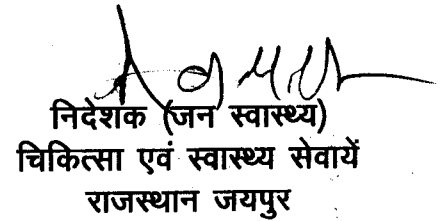 निदेशक (जन स्वास्थ्य)
चिकित्सा एवं स्वास्थ्य सेवायें
राजस्थान जयपुर